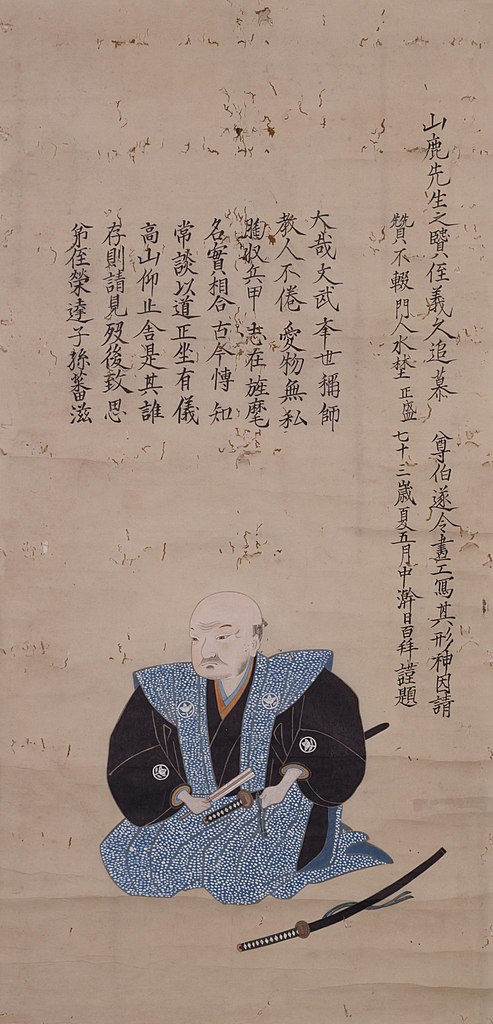 山鹿先生之賢侄義久追慕 尊伯遂令畫工寫其形神因請
贊不輟門人水埜正盛七十三歳夏五月中澣日百拜謹題
大哉文武世稱師
教人不倦愛物無私
胸収兵甲志在旌麾
名實相合古今博知
常談以道正坐有儀
高山仰止舍是其誰
存則請見歿後致思
弟侄榮達子孫蕃滋